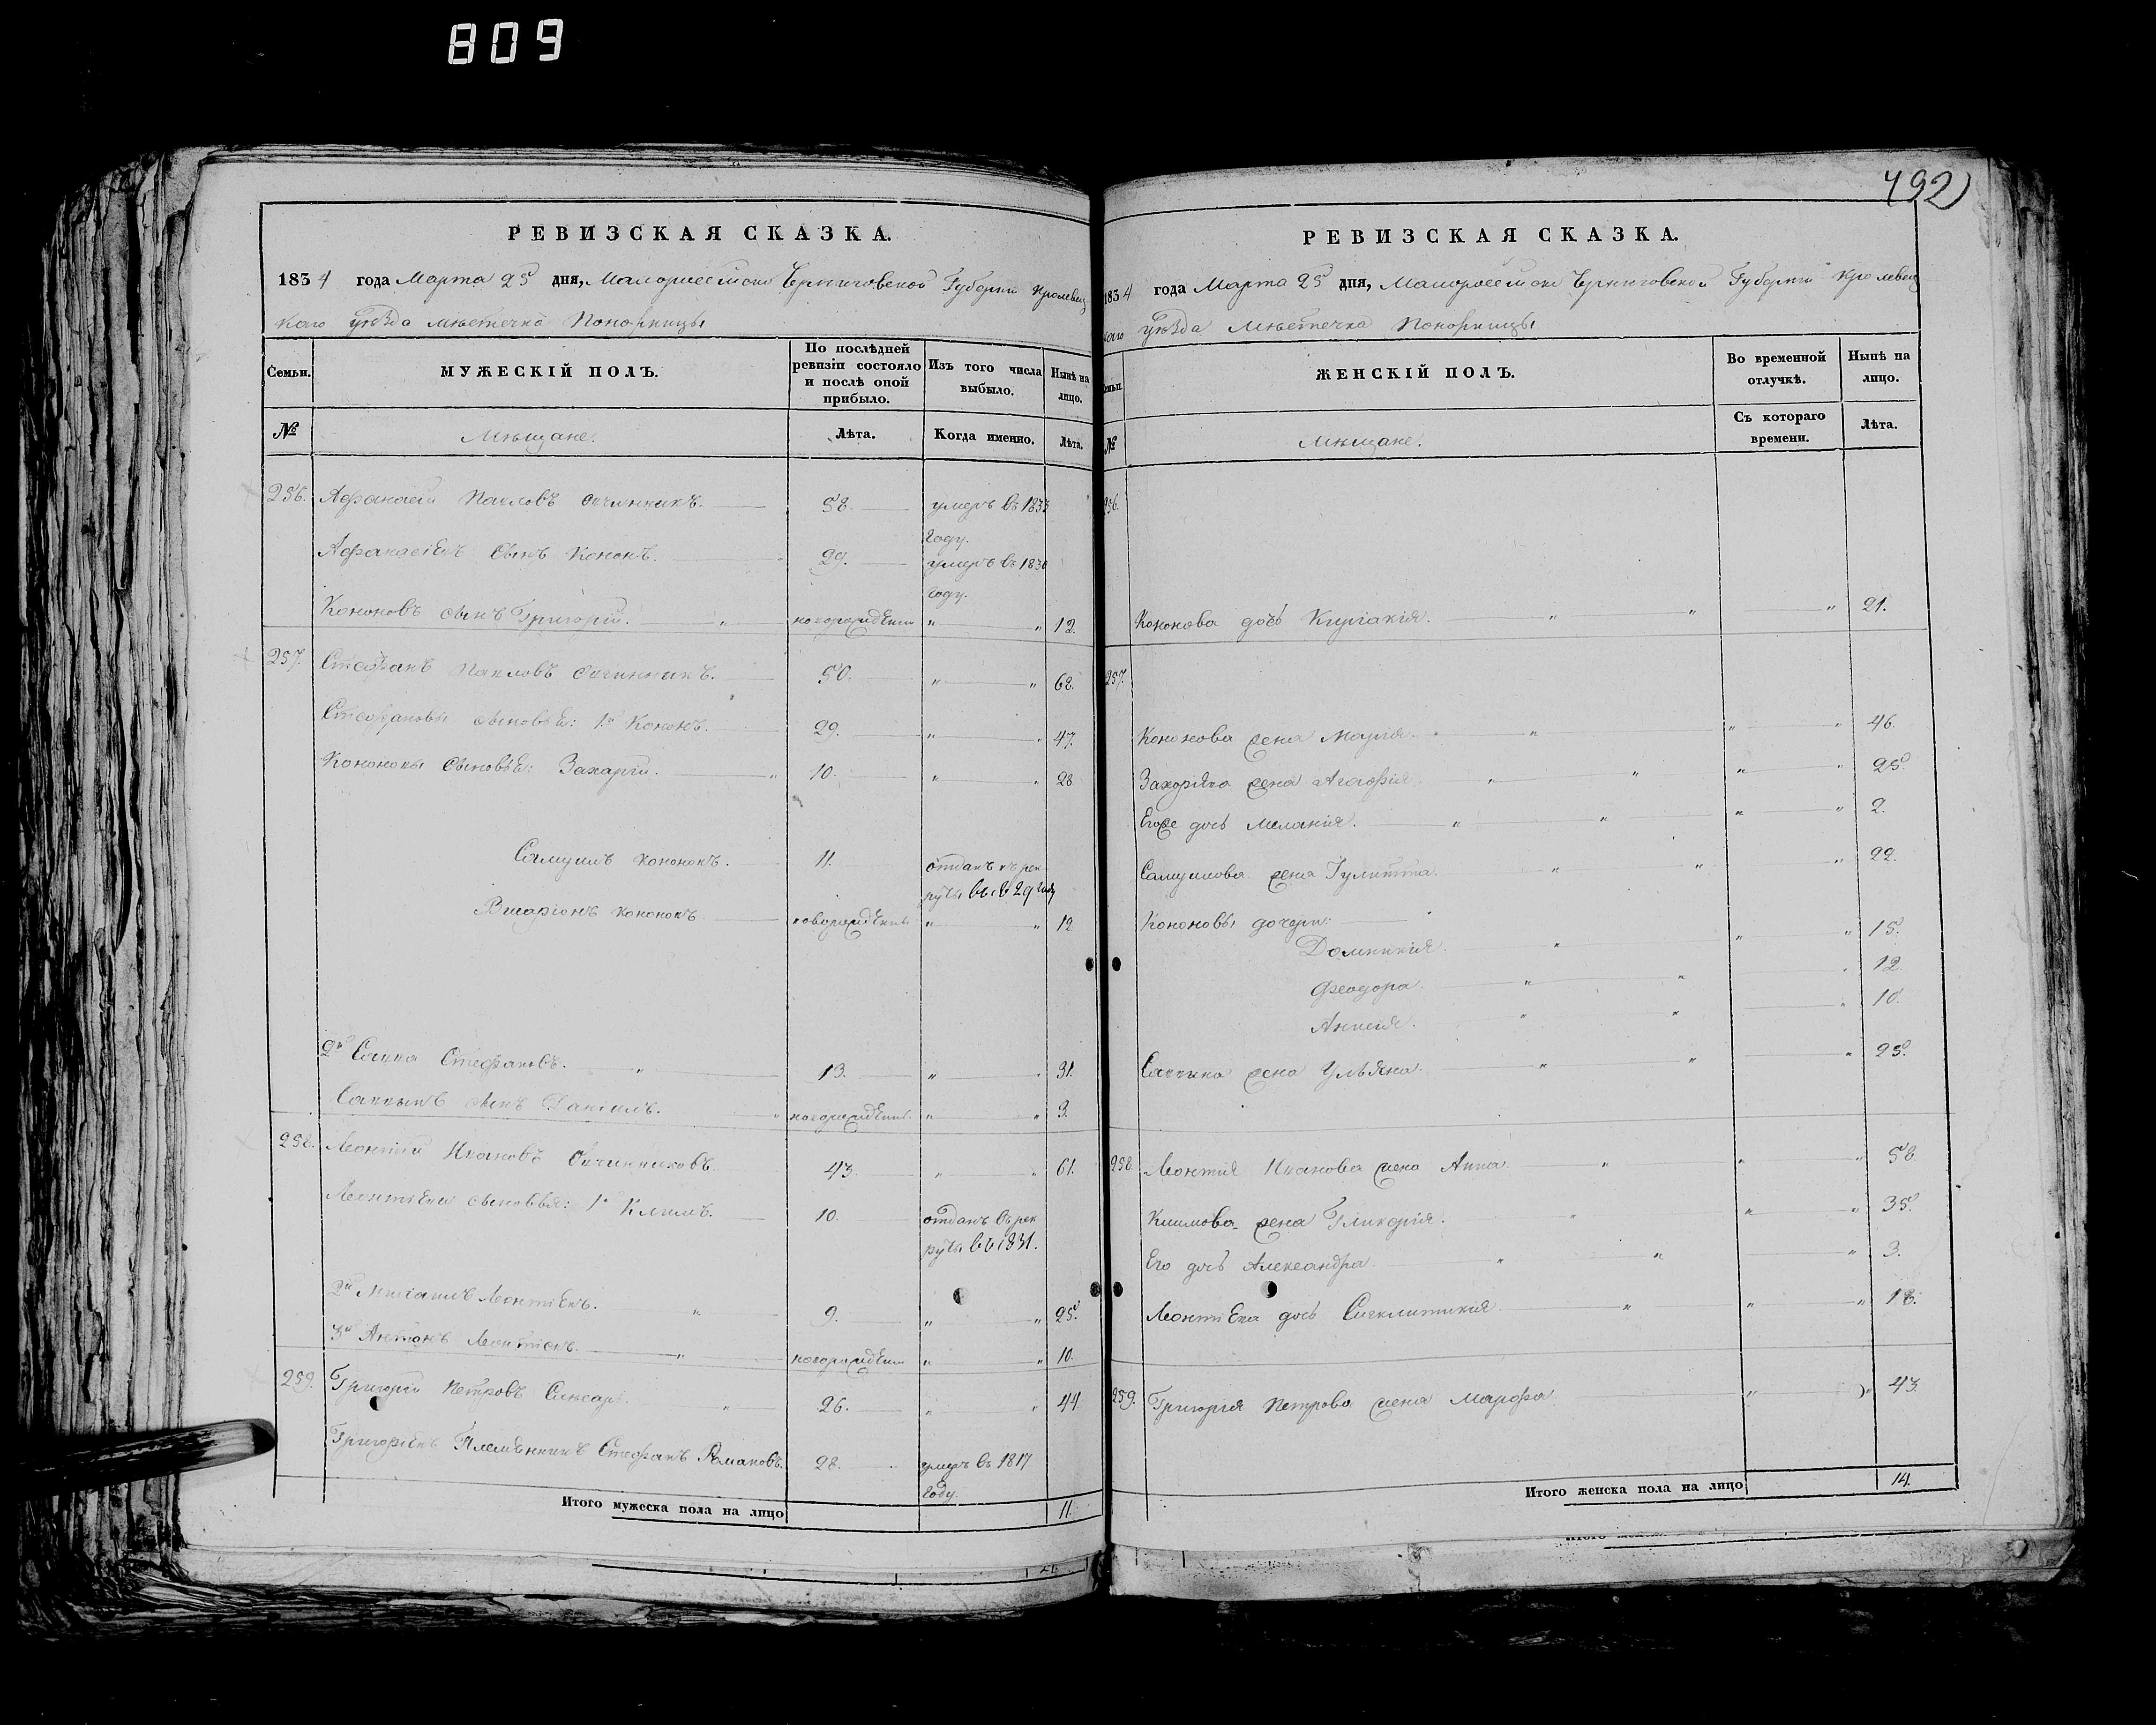 809
492
РЕВИЗСКАЯ СКАЗКА.
1834 года Марта 25 дня, Малороссійской Черниговской Губерніи Кролевец
каго уѣзда мѣстечка Понорницы
Семьи.
МУЖЕСКІЙ ПОЛЪ.
По послѣдней ревизіи состояло и послѣ оной прибыло.
Изъ того числа выбыло.
Нынѣ на лицо.
№
Мѣщане.
Лѣта.
Когда именно.
Лѣта.
256. Афанасій Павловъ Овчинникъ. 58. умеръ въ 1833
году.
Афанасіевъ сынъ Кононъ. 29. умеръ въ 1830
году.
Кононовъ сынъ Григорій. " новорожденъ " " 12.
257. Стефанъ Павловъ Овчинникъ. 50. " " 68.
Стефановы сыновья: 1й Кононъ. 29. " " 47.
Кононовы сыновья: Захарій. " 10. " " 28
Самуилъ Кононовъ. 11. отданъ въ рек
руты въ 29 году
Виссаріонъ Кононовъ новорожденъ. " " 12
2й Савва Стефановъ. " 13. " " 31.
Саввинъ сынъ Даніилъ. " новорожденъ. " " 3.
258. Леонтій Ивановъ Овчинниковъ. 43. " " 61.
Леонтіевы сыновья: 1й Климъ. 10. отданъ въ рек
руты въ 1831.
2й Михаилъ Леонтіевъ. " 9. " " 25.
3й Антонъ Леонтіевъ. " новорожденъ " " 10.
259. Григорій Петровъ Слюсарь. " 26. " " 44.
Григоріевъ Племянникъ Стефанъ Романовъ. 28. умеръ въ 1817
году.
Итого мужеска пола на лицо 11.
РЕВИЗСКАЯ СКАЗКА.
1834 года Марта 25 дня, Малороссійской Черниговской Губерніи Кролевец
каго уѣзда мѣстечка Понорницы
Семьи.
ЖЕНСКІЙ ПОЛЪ.
Во временной отлучкѣ.
Нынѣ на лицо.
№
Мѣщане.
Съ котораго времени.
Лѣта.
256.
Кононова дочь Киріакія. " " " 21.
257.
Кононова жена Марія. " " " 46.
Захаріева жена Агафія. " " " " 25.
Егоже дочь Меланія. " " " " 2.
Самуилова жена Іулитта. " " " 22.
Кононовы дочери:
Доминикія. " " " 15.
Феодора. " " " 12.
Анисія. " " " 10.
Саввина жена Ульяна. " " " 25.
258. Леонтія Иванова жена Анна. " " " 58.
Климова жена Гликерія. " " " 35.
Его дочь Александра. " " " 3.
Леонтіева дочь Сигклитикія. " " " 18.
259. Григорія Петрова жена Марфа. " " 43.
Итого женска пола на лицо 14.